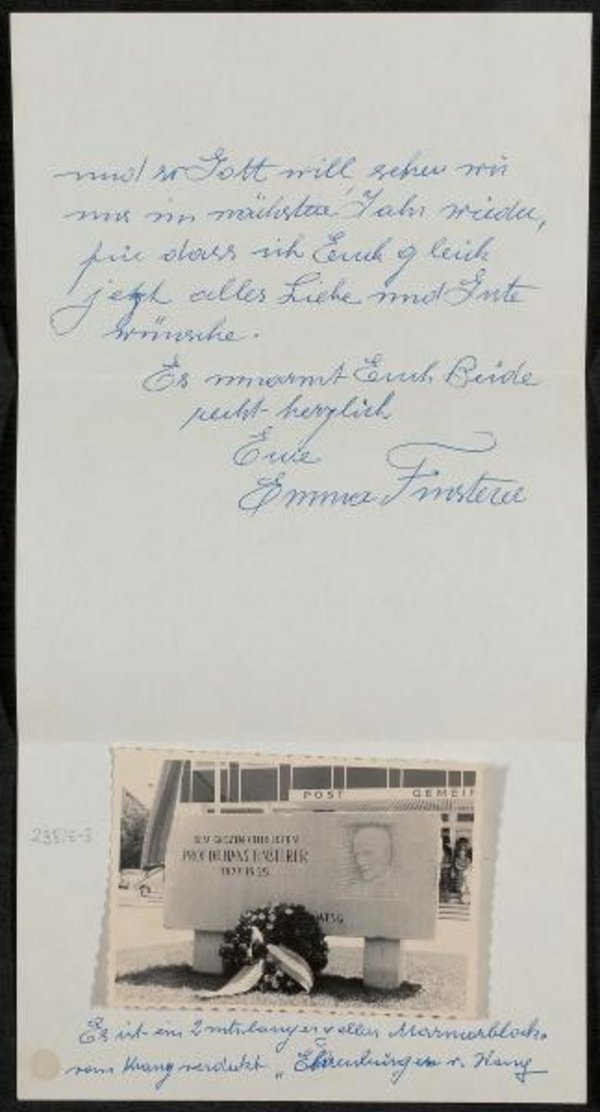 und so Gott will, sehen wir
uns im nächsten Jahr wieder,
für dass ich Euch gleich
jetzt alles Liebe und Gute
wünsche.
Es umarmt Euch Beide
recht herzlich
Eure
Emma Finsterer
POST GEMEIN
PROF. DR. HANS FINSTERER
1877-1955
235/5-3
Es ist ein 2 mtr langer Marmorblock.
vom Kranz verdeckt „Ehrenbürger v. Weng